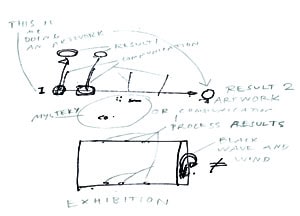 THIS IS
DOING
AN ARTWORK
RESULT 1
COMMUNICATION
1
RESULT 2
ARTWORK
MYSTERY
CO.
OR COMMUNICATION
PROCESS RESULTS
BLACK
WAVE AND
WIND
≠
EXHIBITION